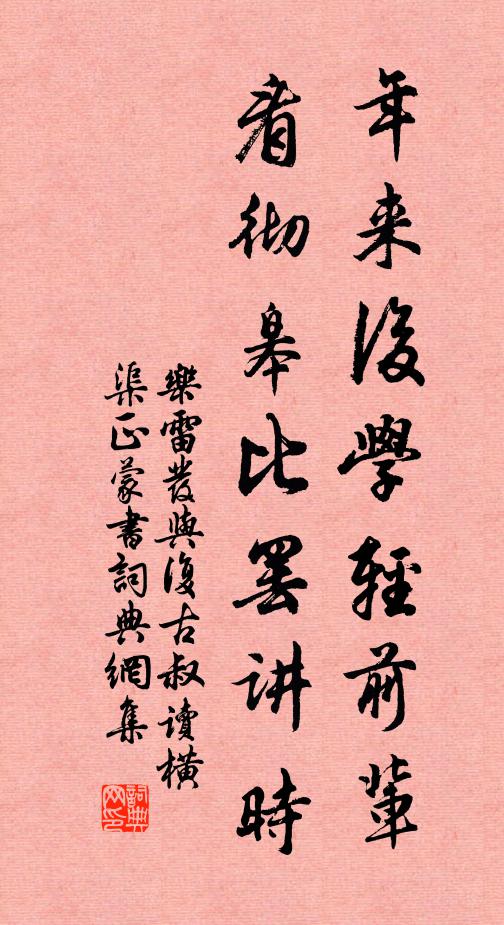 年来後學輕前輩
看彻皋比罢讲時
樂雷發與復古叔讀橫
渠正蒙書詞典網集
詞典网印